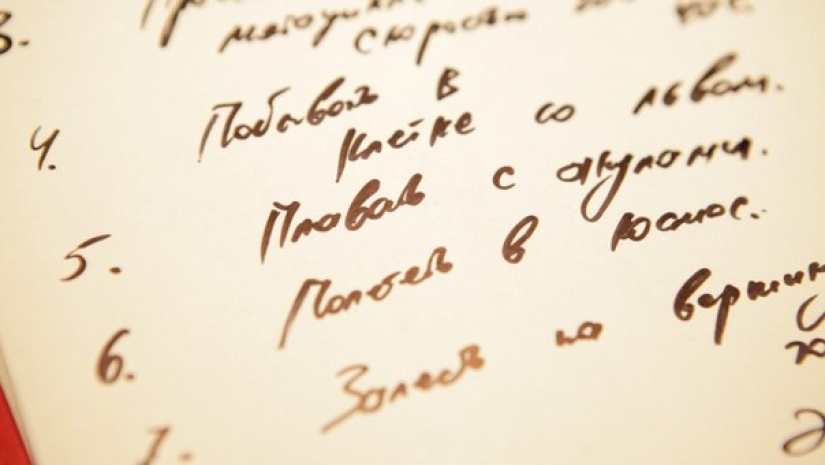 3.
скоростью
4. Побывать в
клетке со львом.
5. Плавать с акулами.
6. Полететь в космос.
7. Залезть на вершину